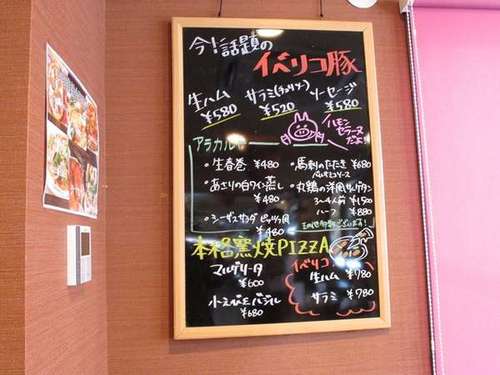 今!話題の
イベリコ豚
生ハム サラミ(チョリソー) ソーセージ
¥580 ¥520 ¥580
ハモン
セラーヌ
だよ
アラカルト
・生春巻 ¥480
・あさりの白ワイン蒸し
¥480
・シーザーサラダ ピッツァ風
¥480
・馬刺のたたき ¥680
バルサミコソース
・丸鶏の洋風
3〜4人前 ¥1500
ハーフ ¥880
本格窯焼PIZZA
マルゲリータ
¥600
小えびとバジル
¥680
イベリコ
生ハム ¥780
サラミ ¥780